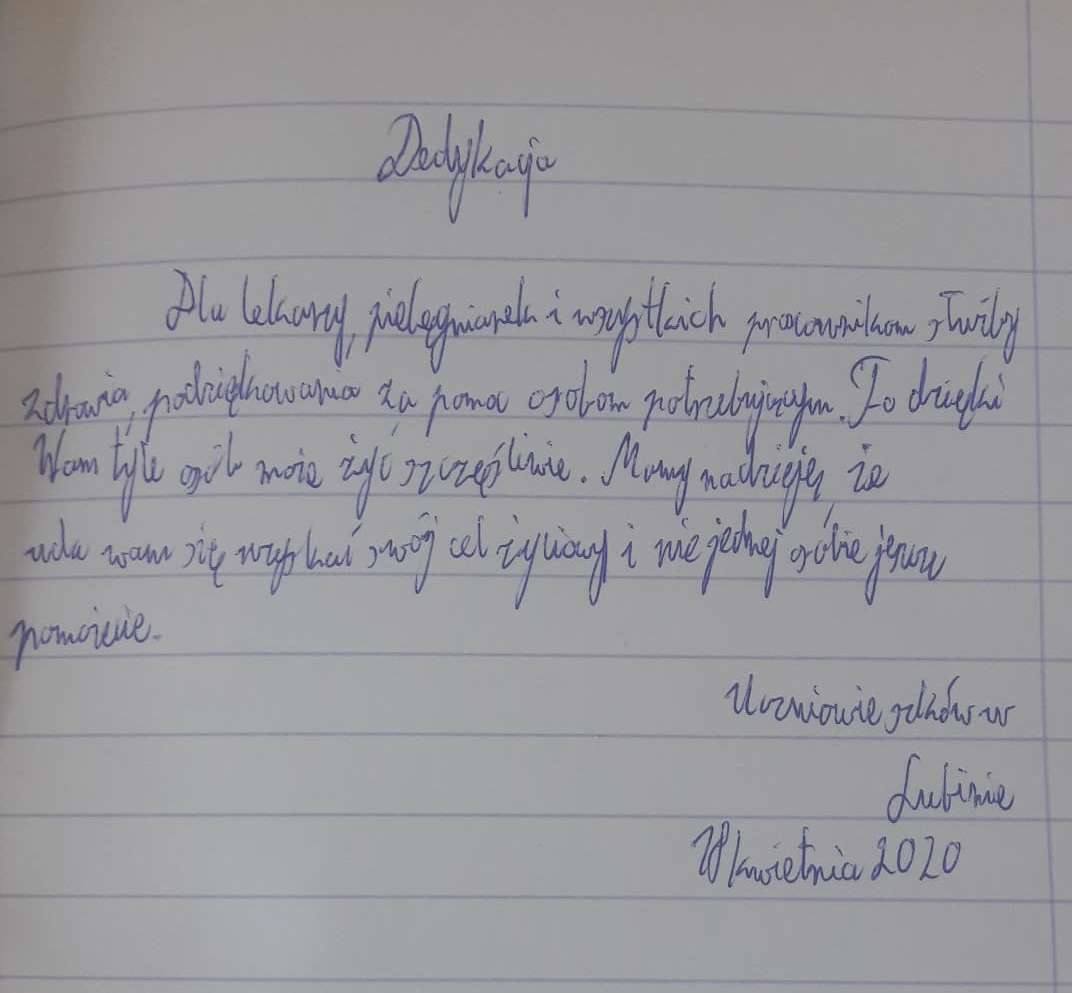 Dedykacja
Dla lekarzy, pielęgniarek i wszystkich pracownikom służby
zdrowia, podziękowania za pomoc osobom potrzebującym. To dzięki
Wam tyle osób może żyć szczęśliwie. Mamy nadzieję, że
uda wam się uzyskać swój cel życiowy i nie jednej osobie jeszcze
pomożecie.
Uczniowie szkół w
Lubinie
kwietnia 2020